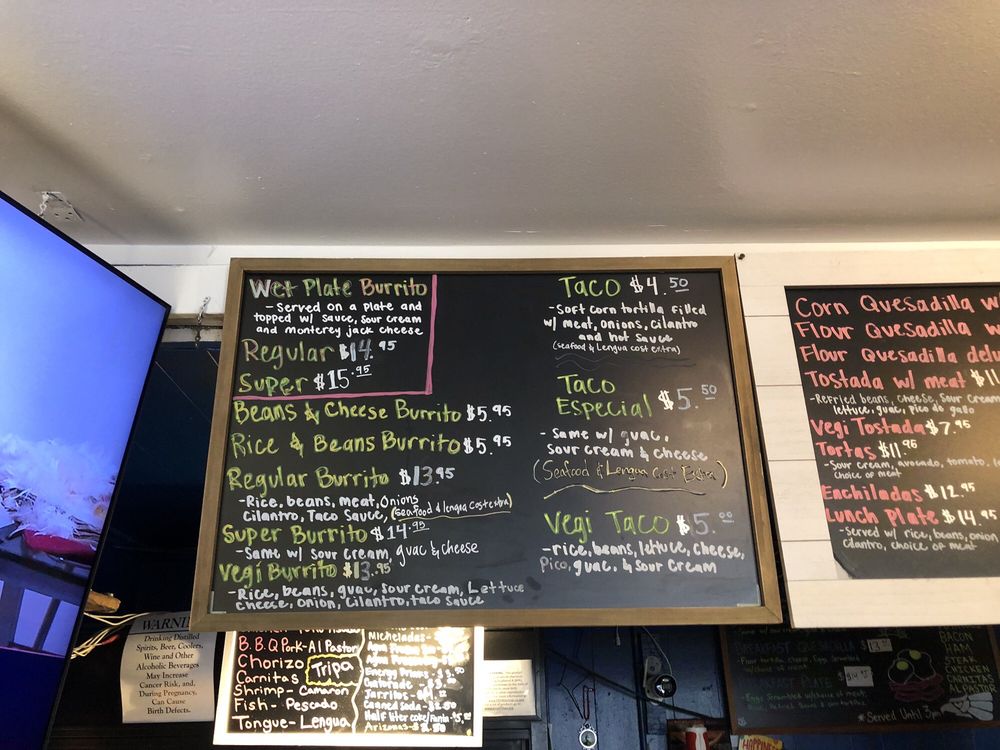 Wet Plate Burrito
- Served on a plate and
topped w/ sauce, sour cream
and monterey jack cheese
Regular $14.95
Super $15.95
Beans & Cheese Burrito $5.95
Rice & Beans Burrito $5.95
Regular Burrito $13.95
- Rice, beans, meat, Onions
Cilantro, Taco Sauce, (Seafood & lengua cost extra)
Super Burrito $14.95
- Same w/ sour cream, guac & cheese
Vegi Burrito $13.95
- Rice, beans, guac, sour cream, Lettuce
cheese, onion, cilantro, taco sauce
Taco $4.50
- Soft corn tortilla filled
w/ meat, onions, cilantro
and hot sauce
(seafood & Lengua cost extra)
Taco
Especial $5.50
- Same w/ guac,
sour cream & cheese
(Seafood & Lengua Cost Extra)
Vegi Taco $5.00
- rice, beans, lettuce, cheese,
Pico, guac, & sour cream
Corn Quesadilla w
Flour Quesadilla w
Flour Quesadilla delu
Tostada w/ meat $11
- Refried beans, cheese, sour cream
lettuce, guac, pico de gallo
Vegi Tostada $7.95
Tortas $11.95
- Sour cream, avocado, tomato,
choice of meat
Enchiladas $12.95
Lunch Plate $14.95
- served w/ rice, beans, onion
cilantro, choice of meat
WARNI
Drinking Distilled
Spirits, Beer, Coolers,
Wine and Other
Alcoholic Beverages
May Increase
Cancer Risk, and,
During Pregnancy,
Can Cause
Birth Defects.
B.B.Q Pork - Al Pastor
Chorizo
Carnitas
Tripa
Shrimp - Camaron
Fish - Pescado
Tongue - Lengua
Micheladas -
Energy Drinks -
Gatorade -
Jarritos -
Canned Soda - $2.50
Half liter coke/Fanta
Arizonas - $2.50
BREAKFAST QUESADILLA
- Flour tortilla, cheese, Egg,
PLATE
BACON
HAM
STEAK
CHICKEN
CARNITAS
AL PASTOR
*Served Until 3pm